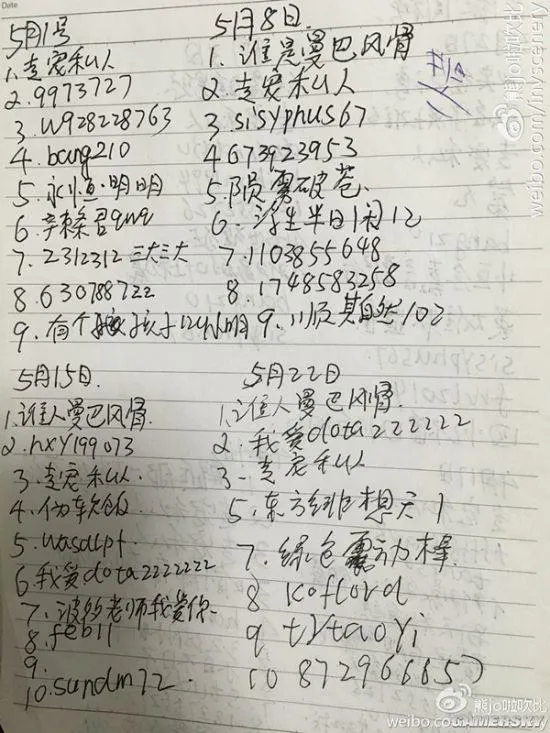 Date
5月1号
1.专宠私人
2.9973727
3.w928228763
4.bang210
5.永恒·明明
6.辛桑君qwq
7.2312312 三大三大
8.630788722
9.有个
5月8日
1.谁是曼巴风骨
2.专宠私人
3.sisyphus67
4 673923953
5.陨雾破苍
6.浮生半日闲12
7.1103855648
8.1748583258
9.顺其自然102
5月15日
1.谁人曼巴风骨
2.hxy199073
3.专宠私人
4.伪软饭
5.wasdlpf
6.我爱dota2222222
7.波多老师我爱你
8.feb11
9.
10.sundm72
5月22日
1.谁人曼巴风骨
2.我爱dota222222
3.专宠私人
5.东方绯想天1
7.绿色震动棒
8 koflord
9 tytaoyi
10
熊jo啦吹比
weibo.com/inyscenery
熊jo啦吹比
weibo.com/
GAMERSKY